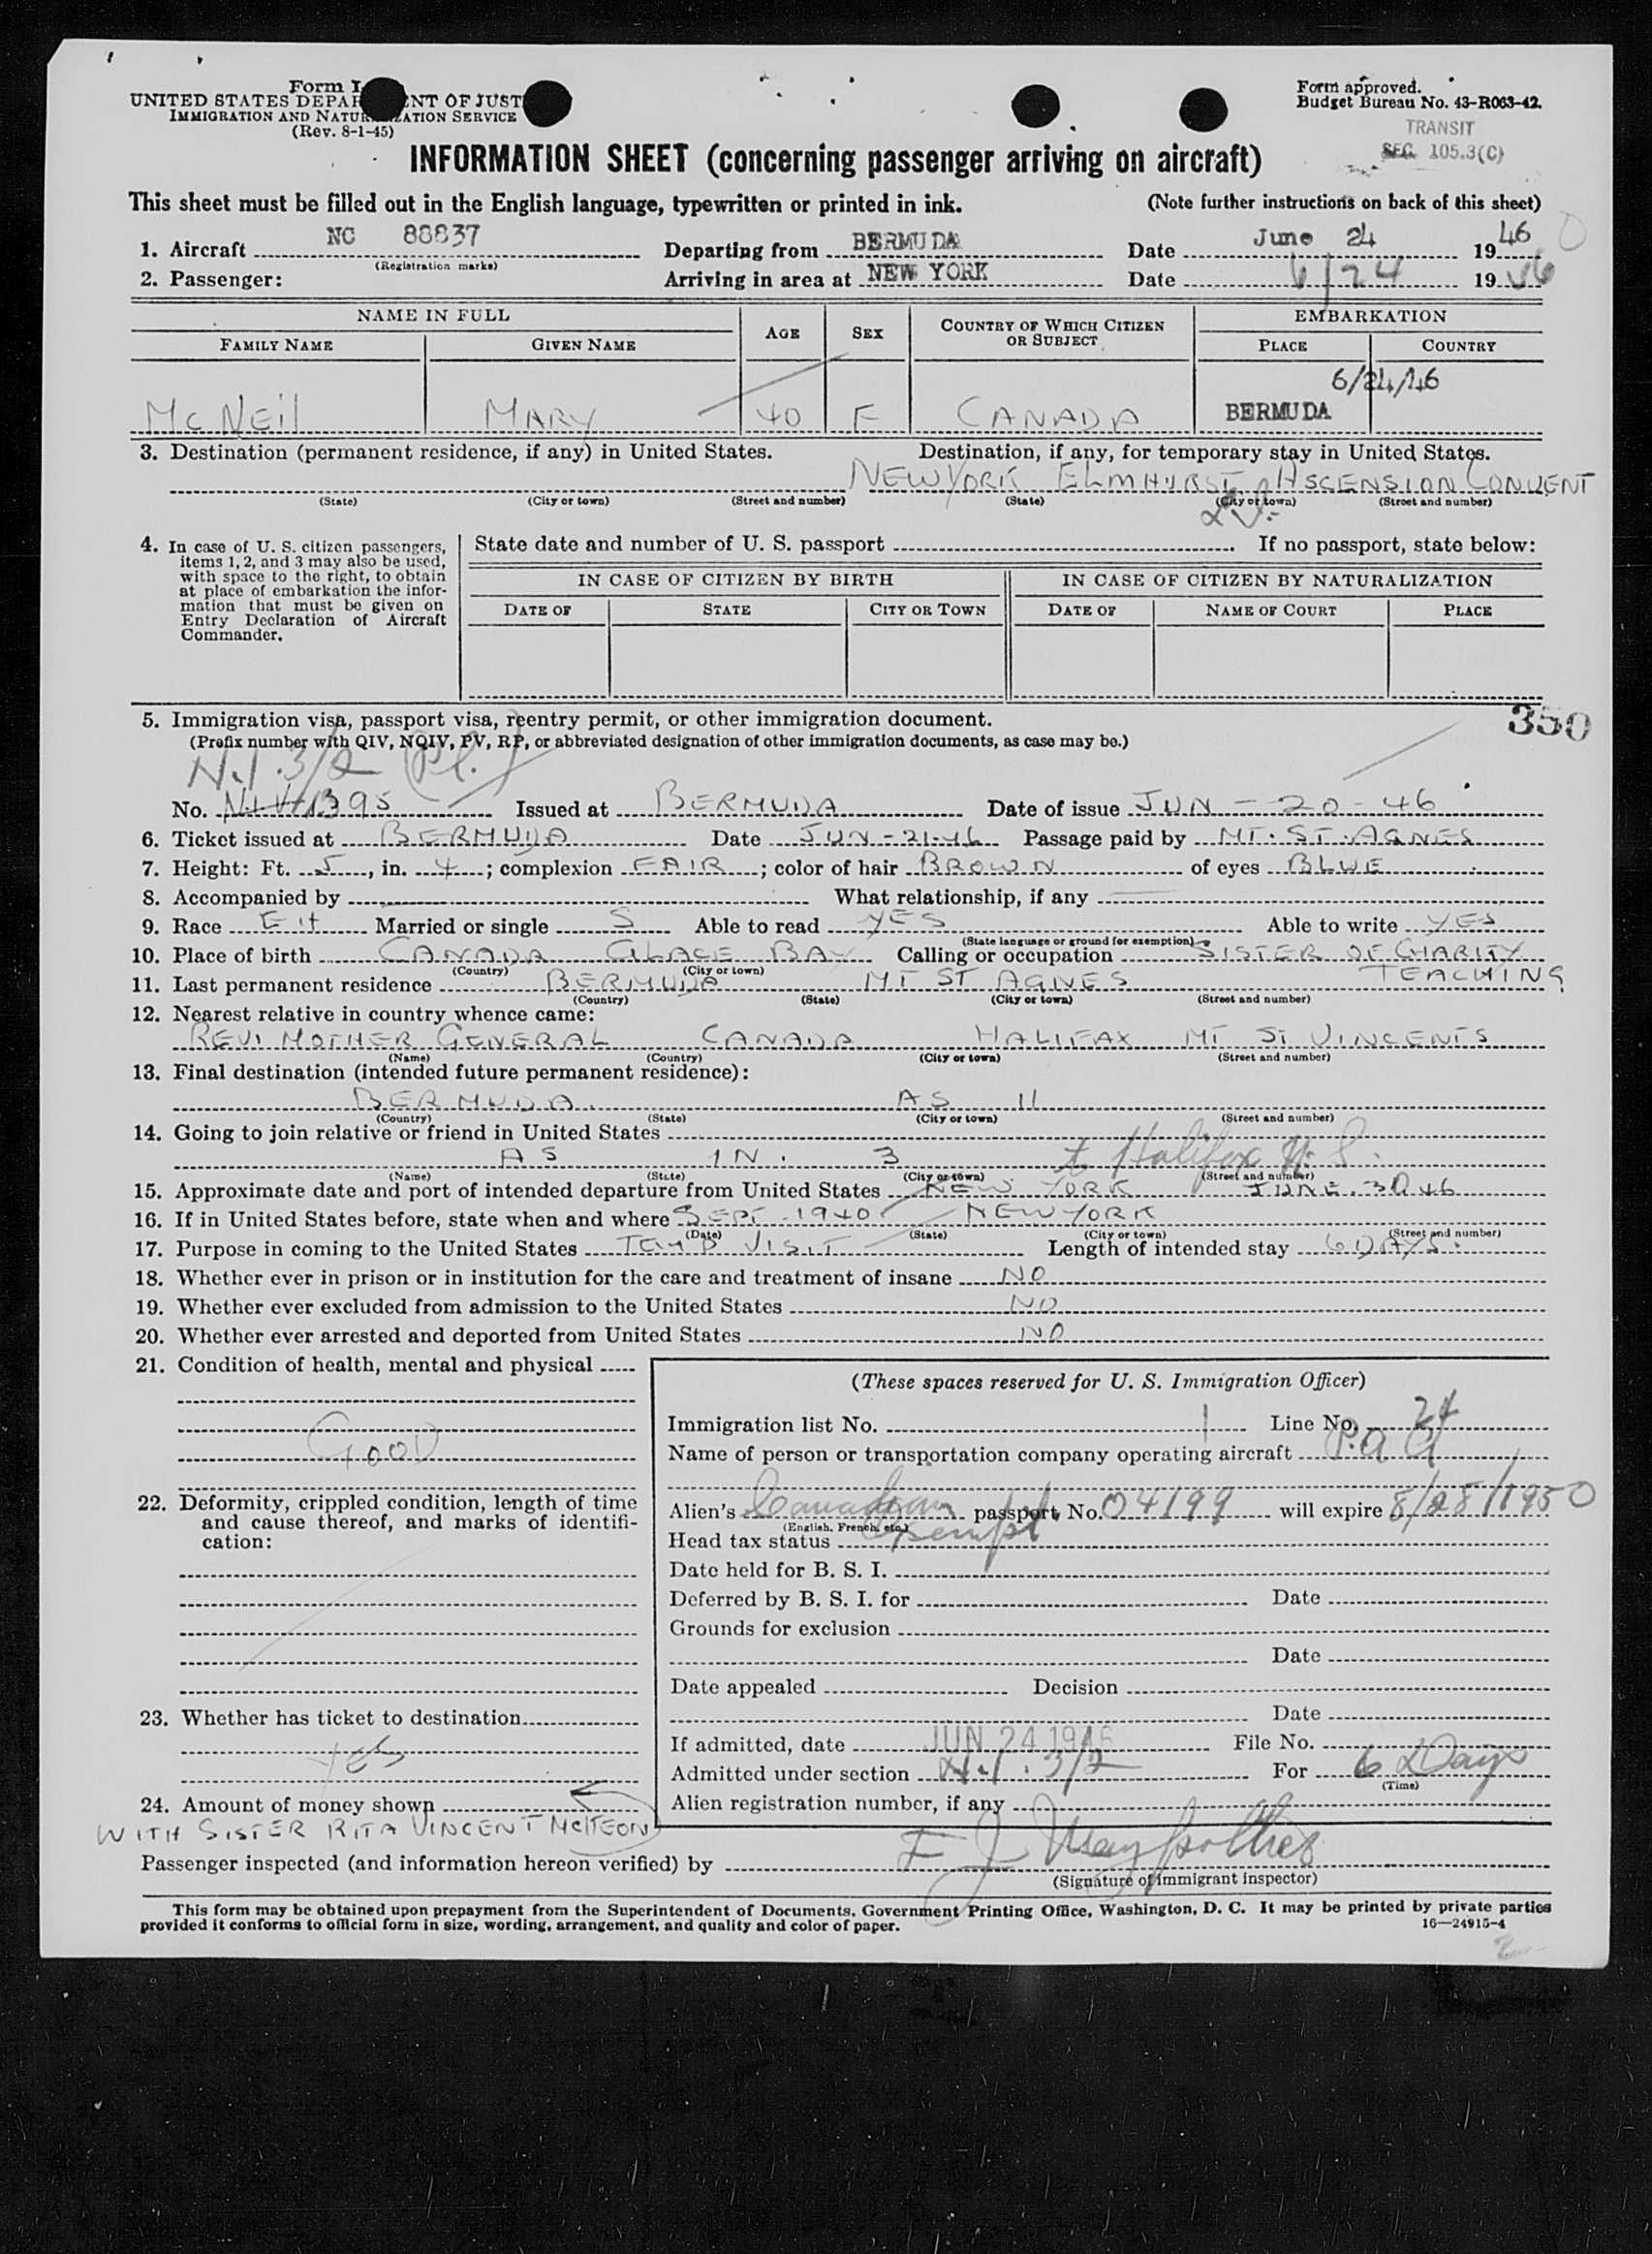 Form I
UNITED STATES DEPAR ENT OF JUST
IMMIGRATION AND NATUR ZATION SERVICE
(Rev. 8-1-45)
Form approved.
Budget Bureau No. 43-R063-42.
TRANSIT
SEC. 105.3(C)
INFORMATION SHEET (concerning passenger arriving on aircraft)
This sheet must be filled out in the English language, typewritten or printed in ink. (Note further instructions on back of this sheet)
1. Aircraft NC 88837 Departing from BERMUDA Date June 24 1946
(Registration marks)
2. Passenger: Arriving in area at NEW YORK Date 6/24 1946
NAME IN FULL AGE SEX COUNTRY OF WHICH CITIZEN OR SUBJECT EMBARKATION
FAMILY NAME GIVEN NAME PLACE COUNTRY
6/24/46
MC NEIL MARY 40 F CANADA BERMUDA
3. Destination (permanent residence, if any) in United States. Destination, if any, for temporary stay in United States.
NEW YORK ELMHURST ASCENSION CONVENT
(State) (City or town) (Street and number) (State) (City or town) (Street and number)
4. In case of U. S. citizen passengers, items 1, 2, and 3 may also be used, with space to the right, to obtain at place of embarkation the information that must be given on Entry Declaration of Aircraft Commander.
State date and number of U. S. passport . If no passport, state below:
IN CASE OF CITIZEN BY BIRTH IN CASE OF CITIZEN BY NATURALIZATION
DATE OF STATE CITY OR TOWN DATE OF NAME OF COURT PLACE
5. Immigration visa, passport visa, reentry permit, or other immigration document. 350
(Prefix number with QIV, NQIV, PV, RP, or abbreviated designation of other immigration documents, as case may be.)
N.I. 3/2 (Pl.)
No. N.I.V. 1395 Issued at BERMUDA Date of issue JUN - 20 - 46
6. Ticket issued at BERMUDA Date JUN - 21-46 Passage paid by MT. ST. AGNES
7. Height: Ft. 5, in. 4; complexion FAIR; color of hair BROWN of eyes BLUE
8. Accompanied by What relationship, if any
9. Race Married or single S Able to read YES Able to write YES
(State language or ground for exemption)
10. Place of birth CANADA GLACE BAY Calling or occupation SISTER OF CHARITY
(Country) (City or town) TEACHING
11. Last permanent residence BERMUDA MT ST AGNES
(Country) (State) (City or town) (Street and number)
12. Nearest relative in country whence came:
REV. MOTHER GENERAL CANADA HALIFAX MT ST VINCENTS
(Name) (Country) (City or town) (Street and number)
13. Final destination (intended future permanent residence):
BERMUDA. AS 11
(Country) (State) (City or town) (Street and number)
14. Going to join relative or friend in United States
AS IN. 3 to Halifax N.S.
(Name) (State) (City or town) (Street and number)
15. Approximate date and port of intended departure from United States NEW YORK JUNE. 30 46
16. If in United States before, state when and where SEPT - 1940 NEW YORK
(Date) (State) (City or town) (Street and number)
17. Purpose in coming to the United States TEMP VISIT Length of intended stay 6 DAYS.
18. Whether ever in prison or in institution for the care and treatment of insane NO
19. Whether ever excluded from admission to the United States NO
20. Whether ever arrested and deported from United States NO
21. Condition of health, mental and physical
GOOD
22. Deformity, crippled condition, length of time and cause thereof, and marks of identification:
23. Whether has ticket to destination
Yes
24. Amount of money shown
WITH SISTER RITA VINCENT MCKEON
(These spaces reserved for U. S. Immigration Officer)
Immigration list No. 1 Line No. 24
Name of person or transportation company operating aircraft P.a a
Alien's Canadian passport No. 04199 will expire 8/28/1950
(English, French, etc.)
Head tax status Exempt
Date held for B. S. I.
Deferred by B. S. I. for Date
Grounds for exclusion
Date
Date appealed Decision
Date
If admitted, date JUN 24 1946 File No.
Admitted under section N.I. 3/2 For 6 Days
(Time)
Alien registration number, if any
Passenger inspected (and information hereon verified) by
(Signature of immigrant inspector)
This form may be obtained upon prepayment from the Superintendent of Documents, Government Printing Office, Washington, D. C. It may be printed by private parties
provided it conforms to official form in size, wording, arrangement, and quality and color of paper. 16—24915-4
2